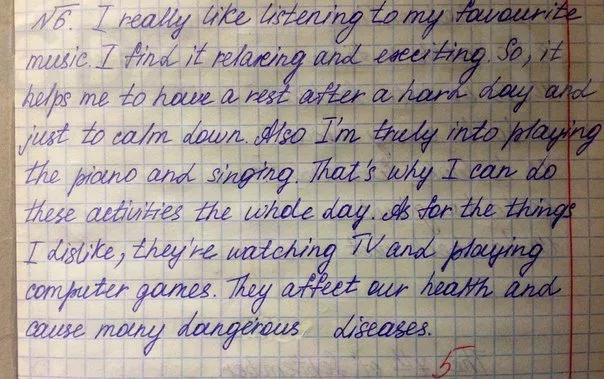 №6. I really like listening to my favourite
music. I find it relaxing and exciting. So, it
helps me to have a rest after a hard day and
just to calm down. Also I'm truly into playing
the piano and singing. That's why I can do
these activities the whole day. As for the things
I dislike, they're watching TV and playing
computer games. They affect our health and
cause many dangerous diseases.
5